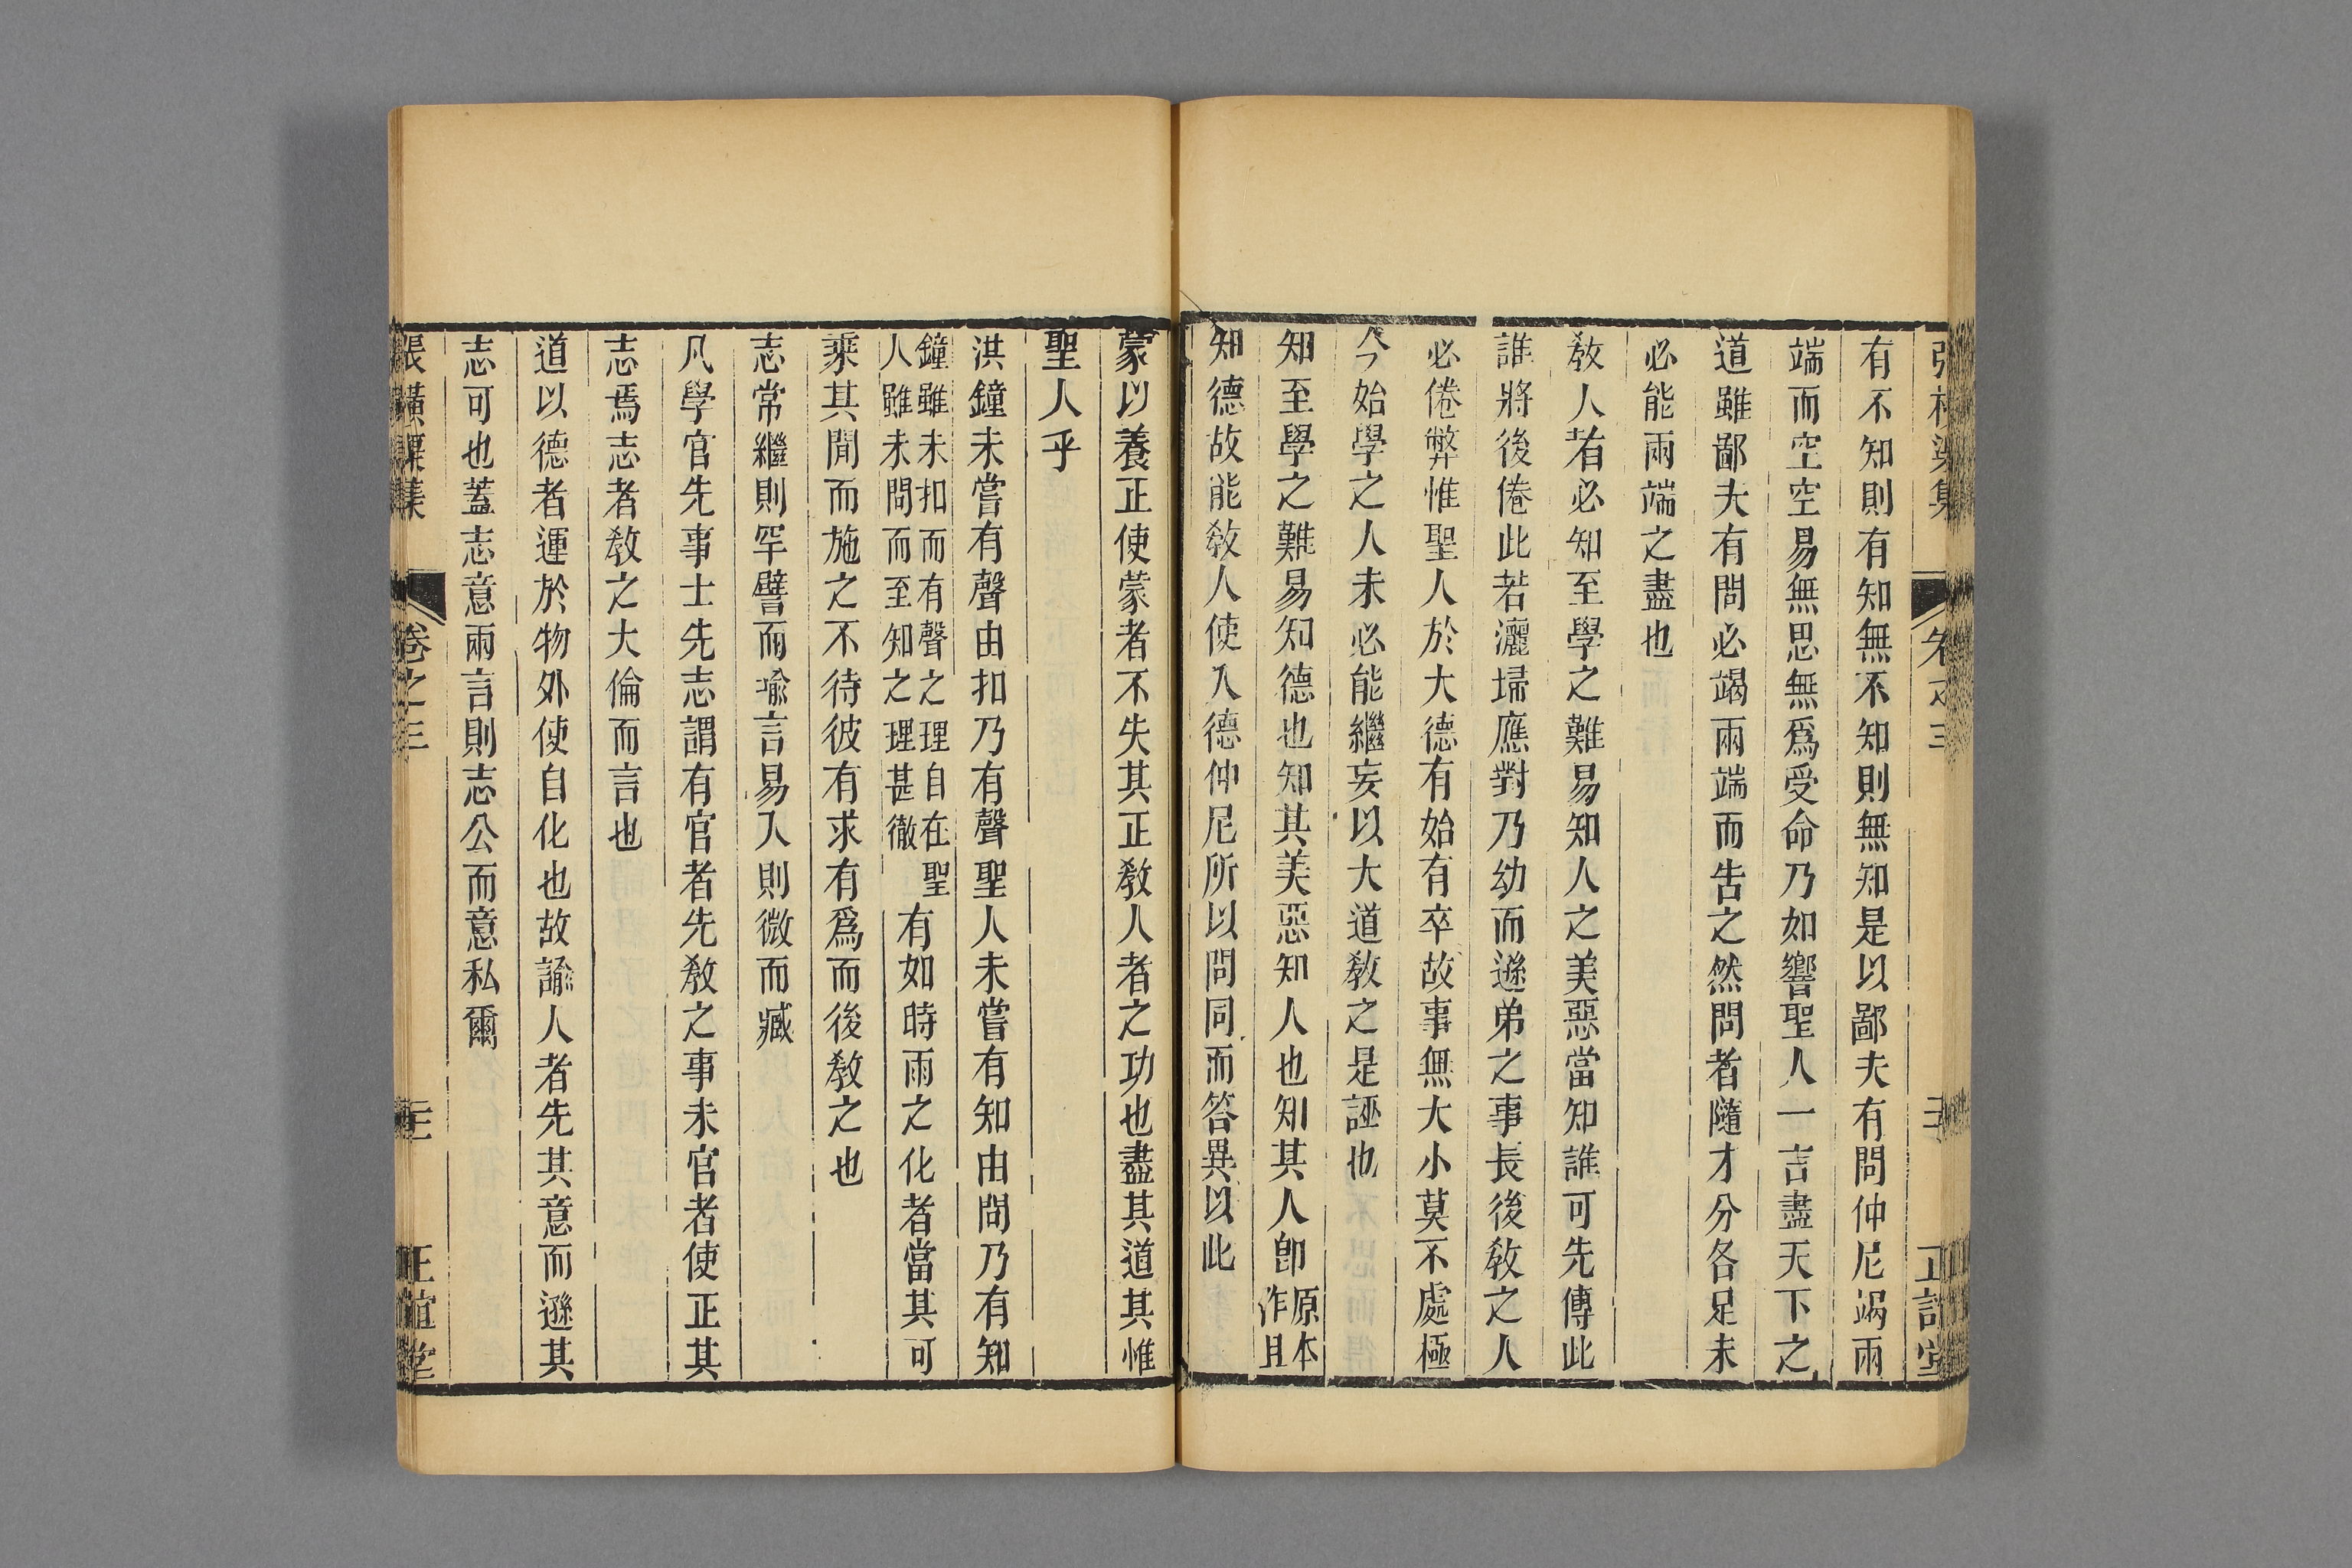 有不知則有知無不知則無知是以鄙夫有問仲尼竭兩
端而空空易無思無爲受命乃如響聖人一言盡天下之
道雖鄙夫有問必竭兩端而告之然問者隨才分各足未
必能兩端之盡也
敎人者必知至學之難易知人之美惡當知誰可先傳此
誰將後倦此若灑埽應對乃幼而遜弟之事長後敎之人
必倦弊惟聖人於大德有始有卒故事無大小莫不處極
今始學之人未必能繼妄以大道敎之是誣也
知至學之難易知德也知其美惡知人也知其人卽原本作且
知德故能敎人使入德仲尼所以問同而答異以此
蒙以養正使蒙者不失其正敎人者之功也盡其道其惟
聖人乎
洪鐘未嘗有聲由扣乃有聲聖人未嘗有知由問乃有知
鐘雖未扣而有聲之理自在聖人雖未問而至知之理甚徹有如時雨之化者當其可
乘其間而施之不待彼有求有爲而後敎之也
志常繼則罕譬而喻言易入則微而臧
凡學官先事士先志謂有官者先敎之事未官者使正其
志焉志者敎之大倫而言也
道以德者運於物外使自化也故諭人者先其意而遜其
志可也蓋志意兩言則志公而意私爾
張橫渠集 卷之三 正誼堂